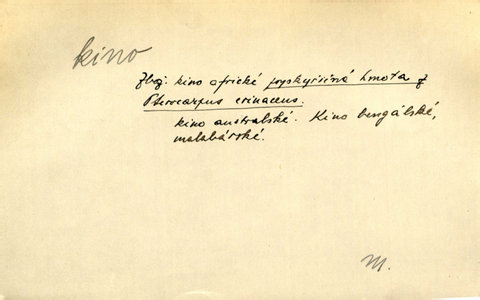 kino
Zbož. kino africké pryskyřičná hmota z
Pterocarpus erinaceus.
kino australské. Kino bengálské,
malabárské.
M.